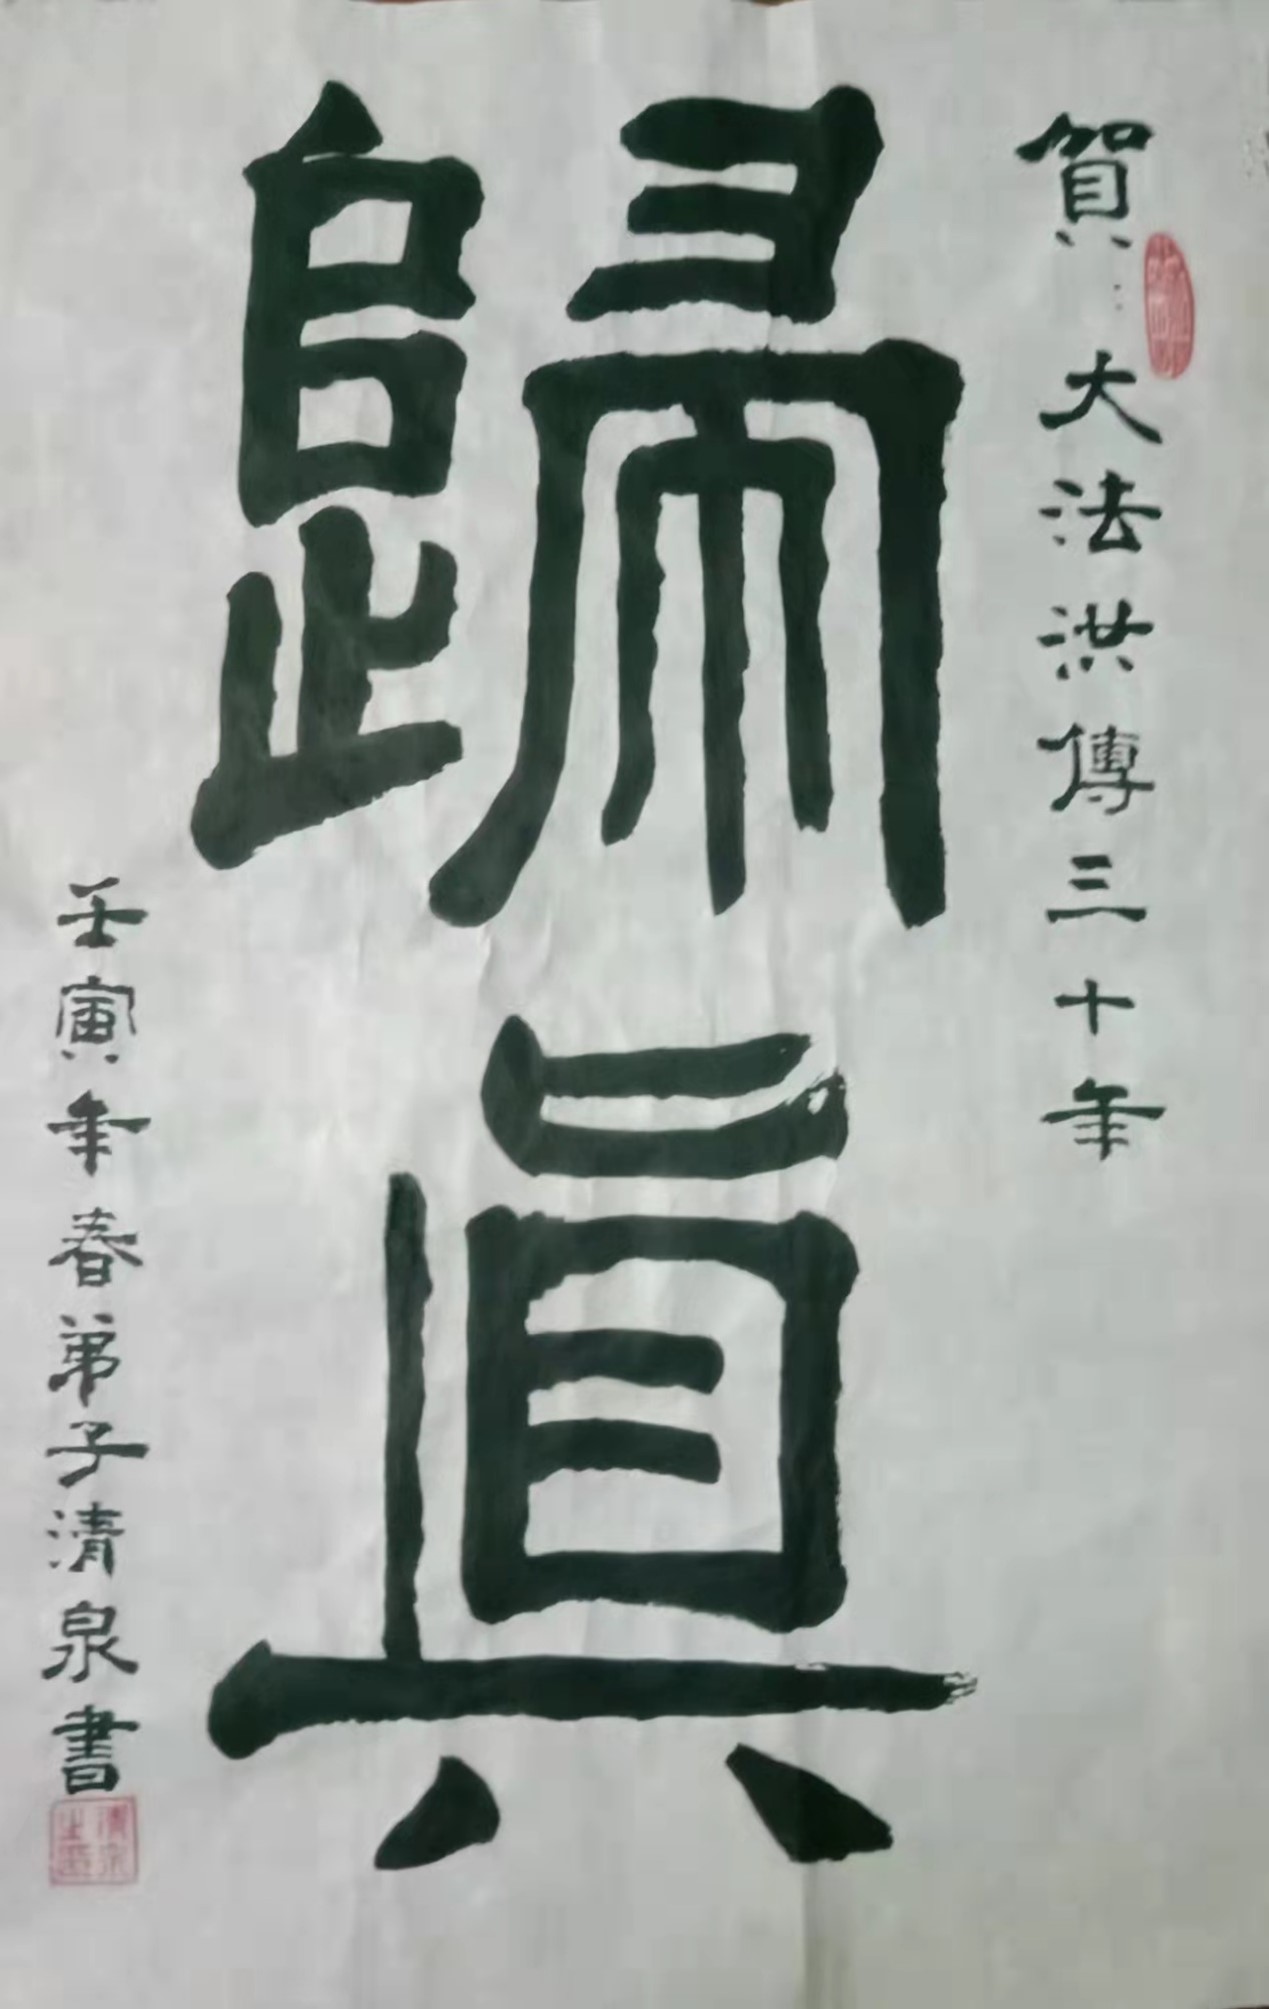 賀：大法洪傳三十年
歸真
壬寅年春弟子清泉書